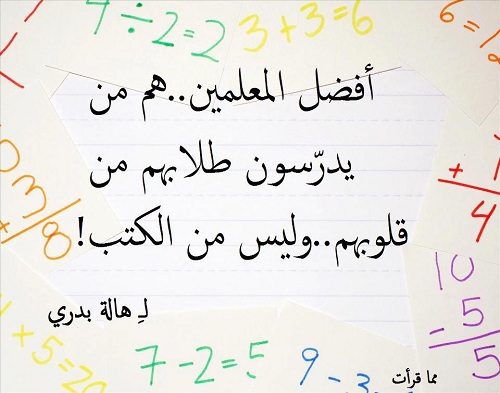 4÷2=2
3+3=6
6=1
أفضل المعلمين..هم من
يدرّسون طلابهم من
قلوبهم..وليس من الكتب!
لـِ هالة بدري
3
8
+
4
10
- 5
5
+5=20
7-2=5
9-3
مما قرأت